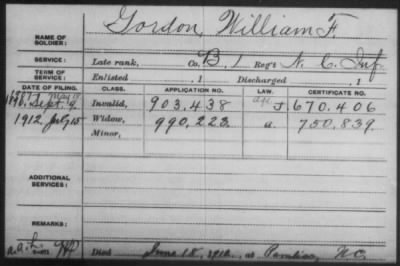 NAME OF SOLDIER: Gordon, William F.
SERVICE: Late rank, Co. B, 1 Reg't N. C. Inf.
TERM OF SERVICE: Enlisted , 1 Discharged , 1
DATE OF FILING. CLASS. APPLICATION NO. LAW. CERTIFICATE NO.
Sept. 9. Invalid, 903.438 J 670.406
1912, July 15 Widow, 990,223 a. 750,839.
Minor,
ADDITIONAL SERVICES:
REMARKS:
Died June 18, 1912, at N.C.